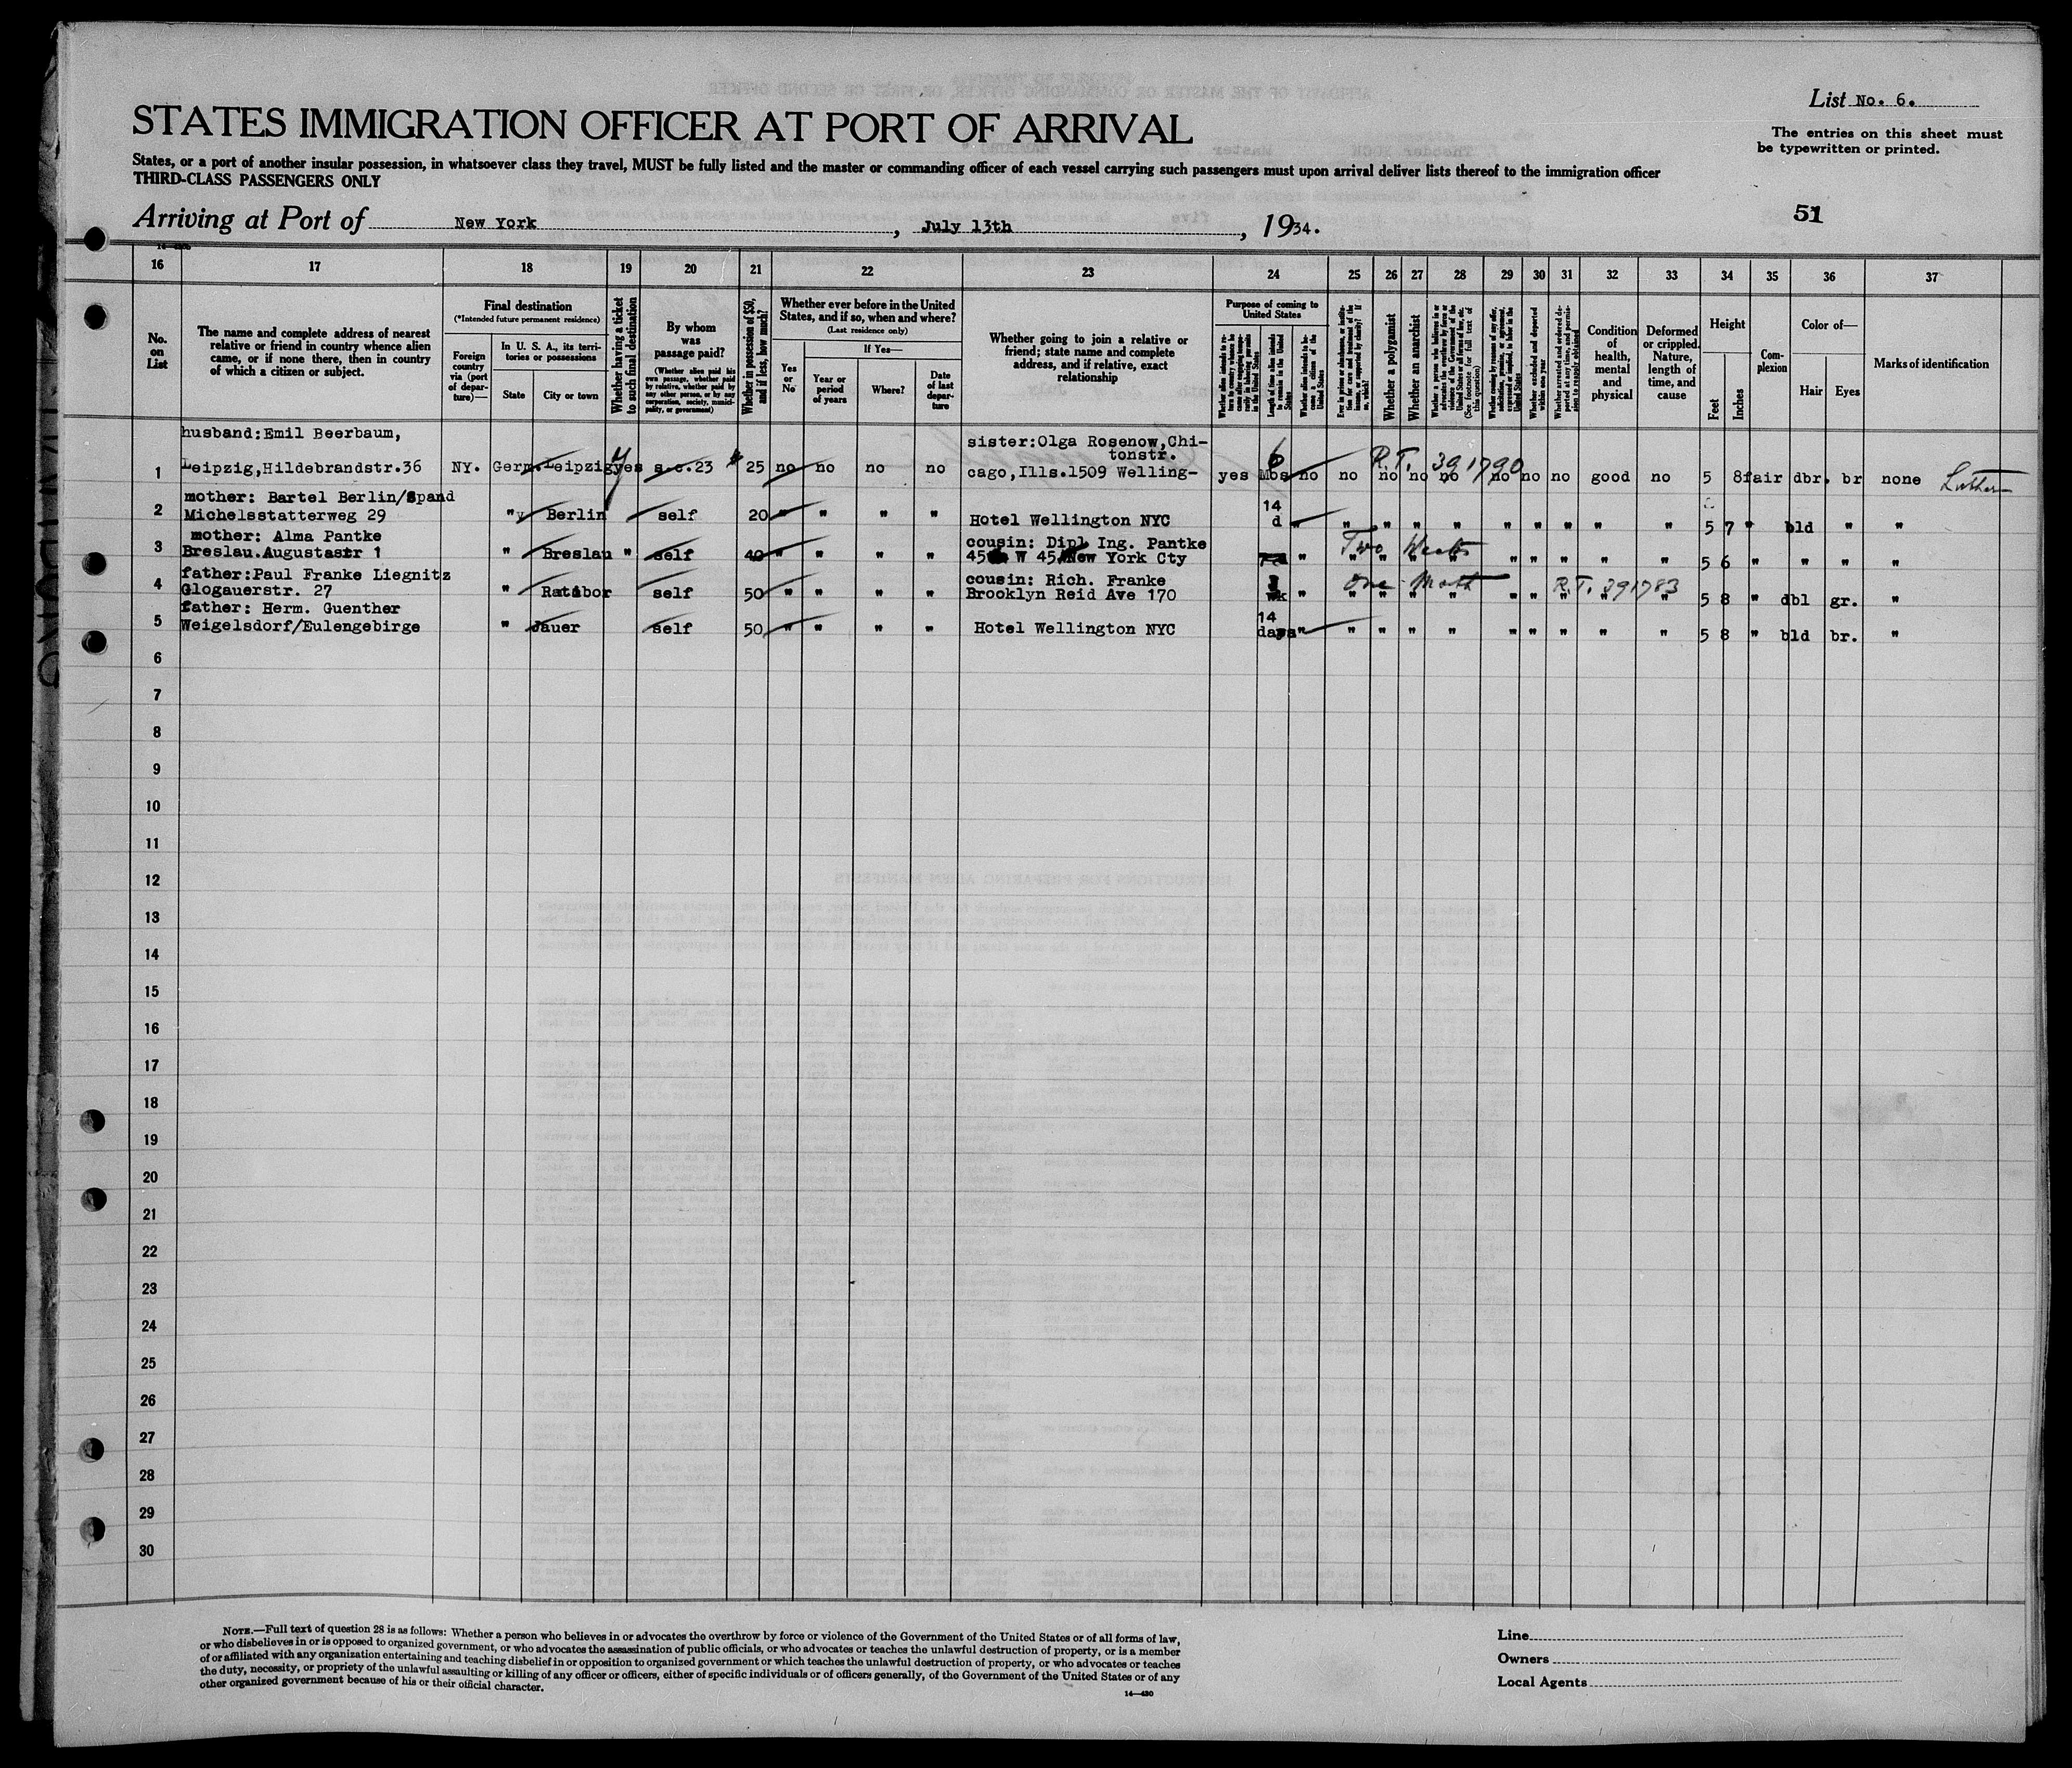 List No. 6.
STATES IMMIGRATION OFFICER AT PORT OF ARRIVAL
The entries on this sheet must
be typewritten or printed.
States, or a port of another insular possession, in whatsoever class they travel, MUST be fully listed and the master or commanding officer of each vessel carrying such passengers must upon arrival deliver lists thereof to the immigration officer
THIRD-CLASS PASSENGERS ONLY
Arriving at Port of New York, July 13th, 1934.
51
16 17 18 19 20 21 22 23 24 25 26 27 28 29 30 31 32 33 34 35 36 37
No.
on
List
The name and complete address of nearest
relative or friend in country whence alien
came, or if none there, then in country
of which a citizen or subject.
Final destination
(*Intended future permanent residence)
Foreign
country
via (port
of depar-
ture)—
In U. S. A., its terri-
tories or possessions
State
City or town
Whether having a ticket
to such final destination
By whom
was
passage paid?
(Whether alien paid his
own passage, whether paid
by relative, whether paid by
any other person, or by any
corporation, society, munici-
pality, or government)
Whether in possession of $50,
and if less, how much?
Whether ever before in the United
States, and if so, when and where?
(Last residence only)
Yes
or
No
If Yes—
Year or
period
of years
Where?
Date
of last
depar-
ture
Whether going to join a relative or
friend; state name and complete
address, and if relative, exact
relationship
Purpose of coming to
United States
Length of time alien intends
to remain in the United
States
Whether alien intends to be-
come a citizen of the
United States
Whether a polygamist
Whether an anarchist
(See footnote for full text of
this question)
Whether excluded and deported
within one year
Condition
of
health,
mental
and
physical
Deformed
or crippled.
Nature,
length of
time, and
cause
Height
Feet
Inches
Com-
plexion
Color of—
Hair
Eyes
Marks of identification
husband:Emil Beerbaum,
sister:Olga Rosenow,Chi-
tonstr.
1 Leipzig,Hildebrandstr.36 NY. Germ. Leipzig yes s.c.23 25 no no no no cago,Ills.1509 Welling- yes 6 Mos no no R.T. 391790 no no no no no no good no 5 8 fair dbr. br none
mother: Bartel Berlin/Spand
2 Michelsstatterweg 29 " Berlin self 20 " " " " Hotel Wellington NYC 14 d " " " " " " " " " " 5 7 " bld " "
mother: Alma Pantke
cousin: Dipl Ing. Pantke
3 Breslau.Augustastr 1 " Breslau " self 40 " " " " 45 W 45 New York Cty " Two Weeks " " " " " " " " " 5 6 " " " "
father:Paul Franke Liegnitz
cousin: Rich. Franke
4 Glogauerstr. 27 " Ratibor self 50 " " " " Brooklyn Reid Ave 170 wk " One Month R.T. 391783 " " " " " " " " " 5 8 " dbl gr. "
father: Herm. Guenther
5 Weigelsdorf/Eulengebirge " Jauer self 50 " " " " Hotel Wellington NYC 14 days " " " " " " " " " " 5 8 " bld br. "
6
7
8
9
10
11
12
13
14
15
16
17
18
19
20
21
22
23
24
25
26
27
28
29
30
NOTE.—Full text of question 28 is as follows: Whether a person who believes in or advocates the overthrow by force or violence of the Government of the United States or of all forms of law,
or who disbelieves in or is opposed to organized government, or who advocates the assassination of public officials, or who advocates or teaches the unlawful destruction of property, or is a member
of or affiliated with any organization entertaining and teaching disbelief in or opposition to organized government or which teaches the unlawful destruction of property, or who advocates or teaches
the duty, necessity, or propriety of the unlawful assaulting or killing of any officer or officers, either of specific individuals or of officers generally, of the Government of the United States or of any
other organized government because of his or their official character.
14—430
Line
Owners
Local Agents